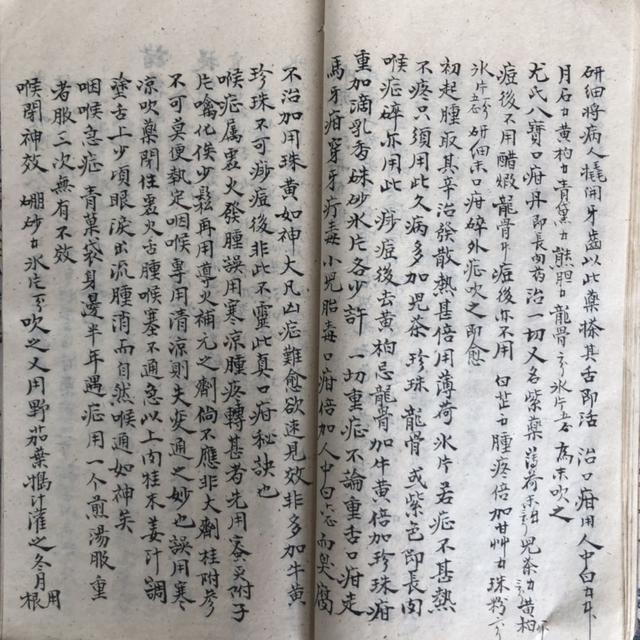 研细将病人撬開牙齒以此藥搽其舌即活　治口疳用人中白
月石　黄柏　青黛　熊胆　龍骨　氷片　為末吹之
尤氏八寶口疳丹即長肉药治一切又名紫藥　薄荷　児茶　黄柏
痘後不用醋煅龍骨　痘後亦不用　白芷　腫疼倍加甘艸　珠粉
氷片　研细末口疳碎外症吹之即愈
初起腫取其辛治發散熱甚倍用薄荷氷片若症不甚熱
不疼只須用此久病多加児茶　珍珠　龍骨　或紫色即長肉
喉症碎亦用此　痧痘後去黄柏忌龍骨加牛黄倍加珍珠疳
重加滴乳香硃砂氷片各少許　一切重症不論重舌口疳走
馬牙疳穿牙疔毒小児胎毒口疳倍加人中白　而臭腐
不治加用珠黄如神大凡凶症難愈欲速見效非多加牛黄
珍珠不可痧痘後非此不靈此真口疳秘訣也
喉症属裏火發腫誤用寒凉腫疼轉甚者先用蜜炙附子
片噙化俟少鬆再用導火補元之劑倘不應非大劑桂附参
不可莫便執定咽喉專用清凉則失変通之妙也誤用寒
凉吹藥閉住裏火舌腫喉塞不通急以上肉桂末姜汁調
塗舌上少頃眼淚出流腫消而自然喉通如神矣
咽喉急症　青菓袋身邊半年遇症用一个煎湯服重
者服三次無有不效
喉閉神效　硼砂　氷片　吹之又用野茄葉搗汁灌之冬月用根